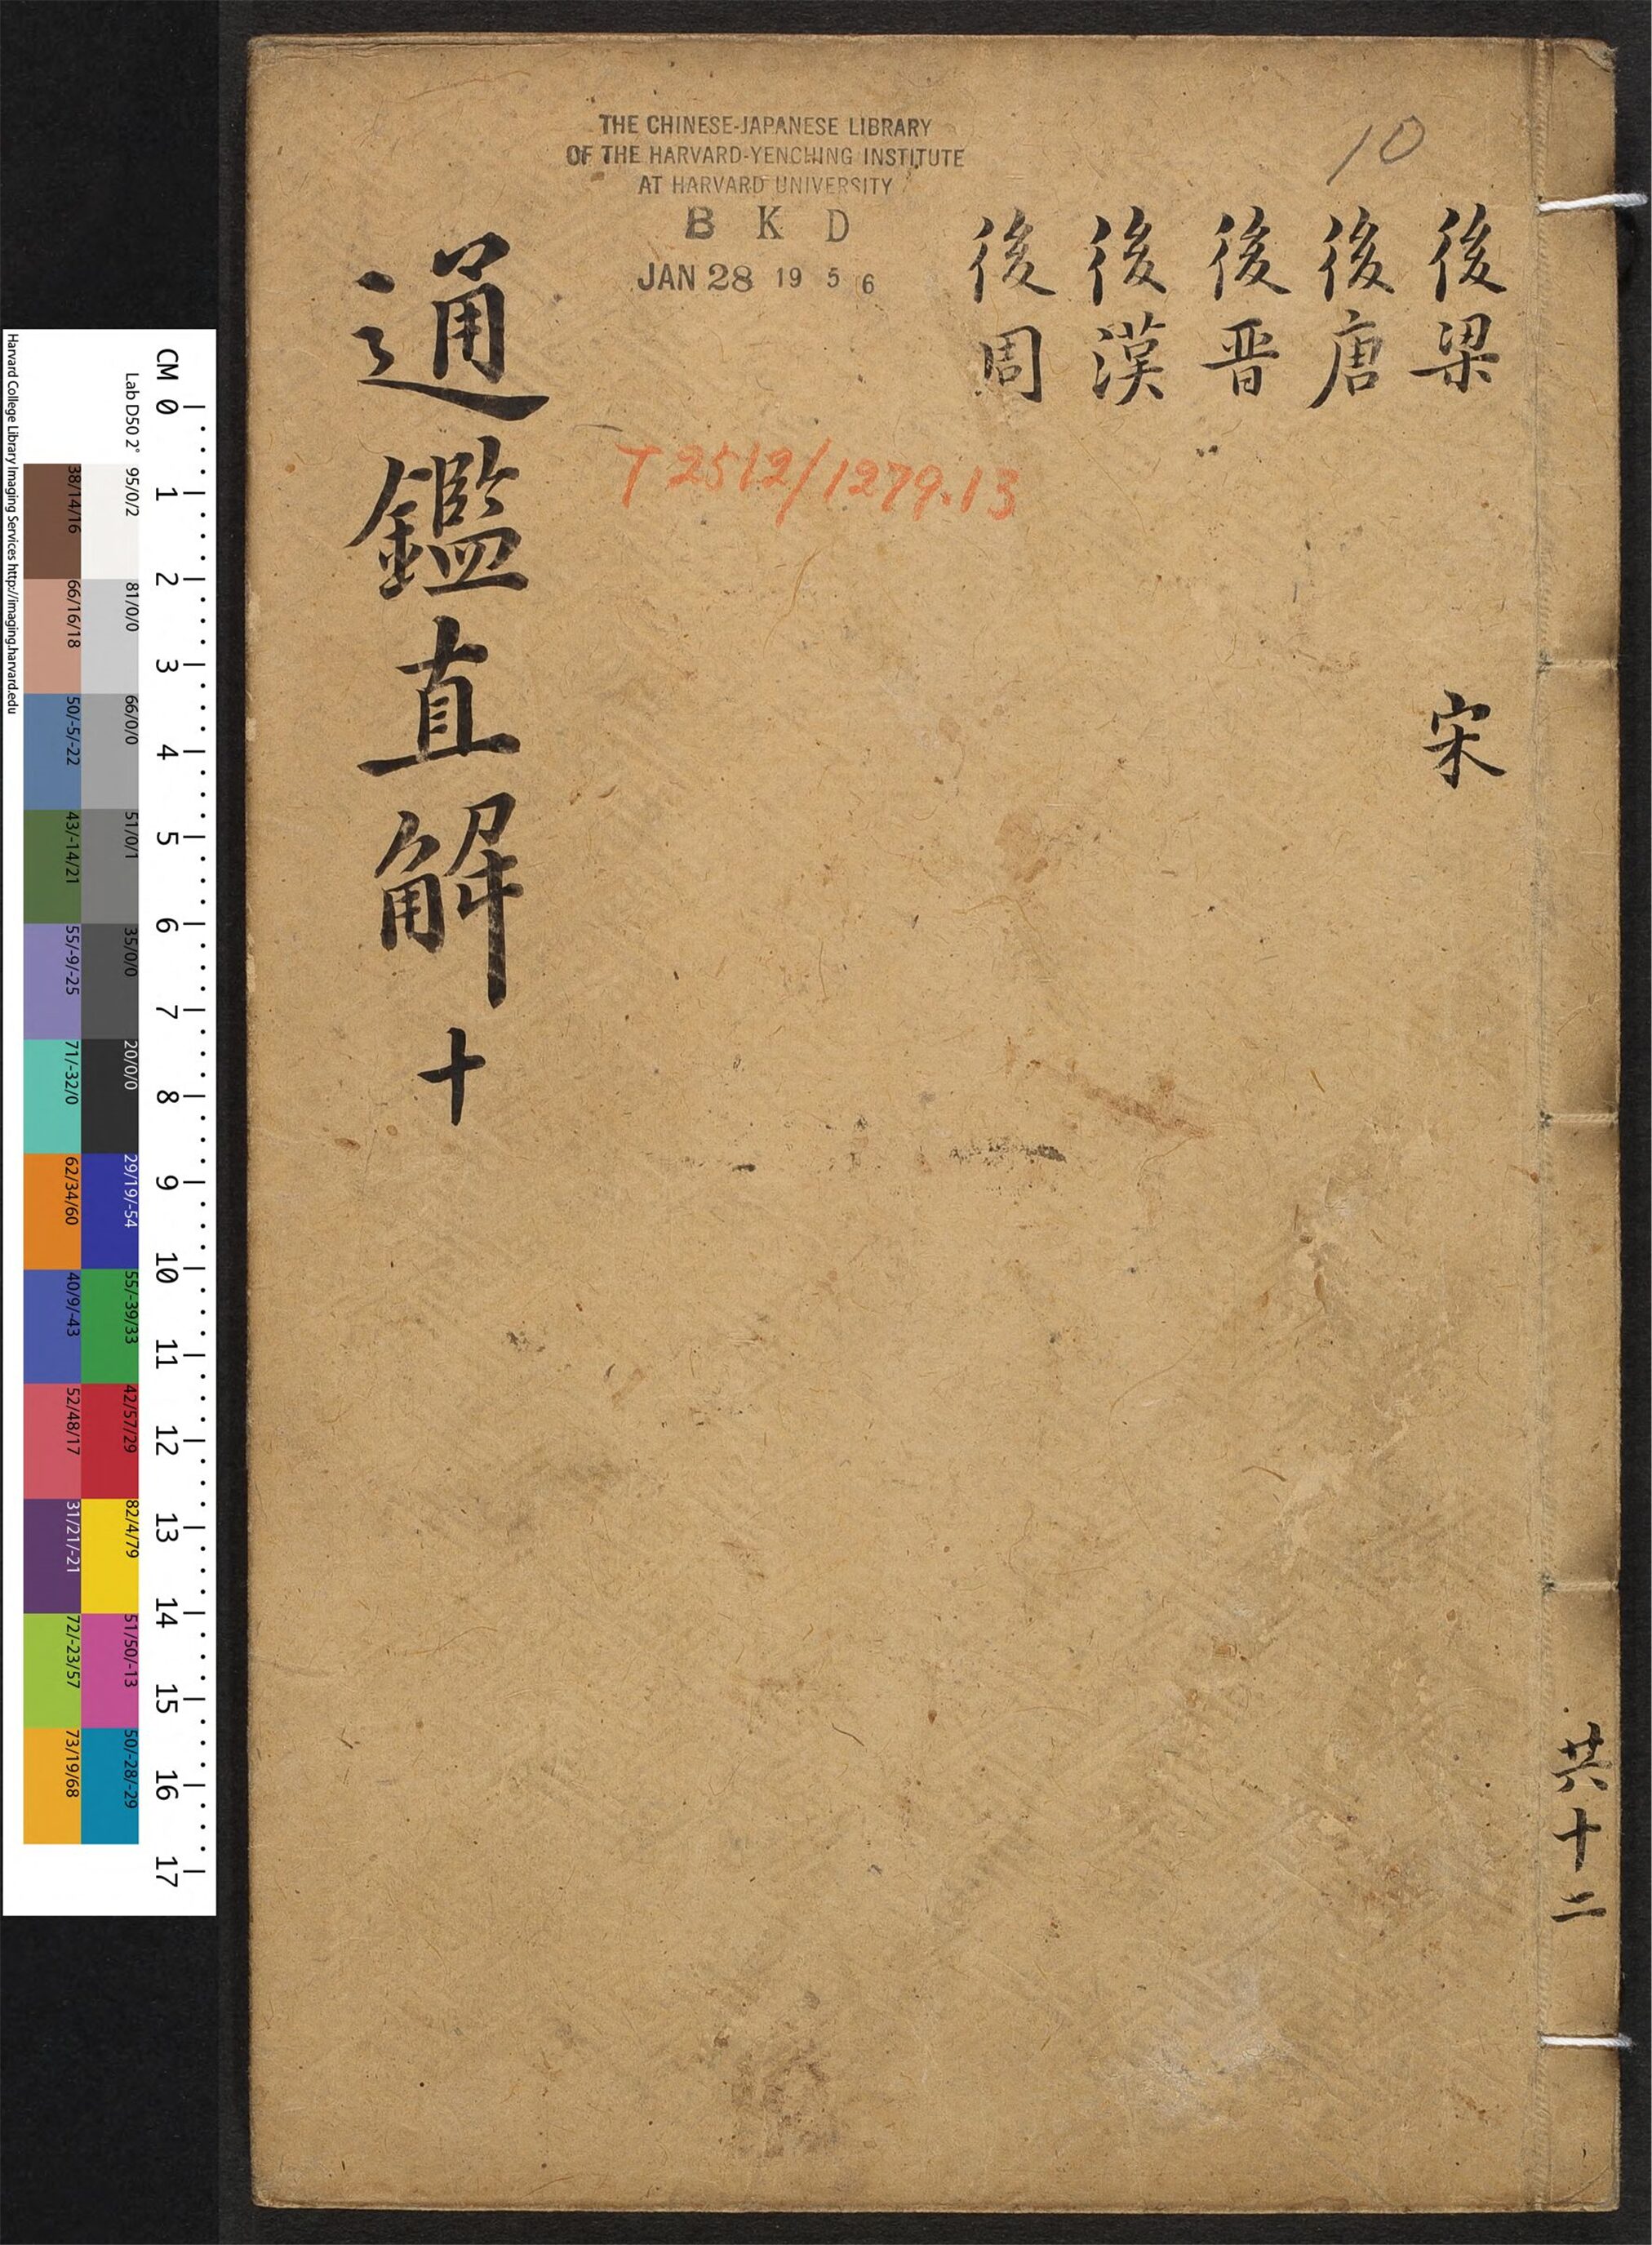 THE CHINESE-JAPANESE LIBRARY
OF THE HARVARD-YENCHING INSTITUTE
AT HARVARD UNIVERSITY
B K D
JAN 28 19 5 6
10
後梁
宋
後唐
後晋
後漢
後周
T 2512/1279.13
通鑑直解十
共十二
CM 0 1 2 3 4 5 6 7 8 9 10 11 12 13 14 15 16 17
Lab D50 2° 95/0/2 81/0/0 66/0/0 51/0/1 35/0/0 20/0/0 29/19/-54 55/-39/33 42/57/29 82/4/79 51/50/-13 50/-28/-29
38/14/16 66/16/18 50/-5/-22 43/-14/21 55/-9/-25 71/-32/0 62/34/60 40/9/-43 52/48/17 31/21/-21 72/-23/57 73/19/68
Harvard College Library Imaging Services http://imaging.harvard.edu